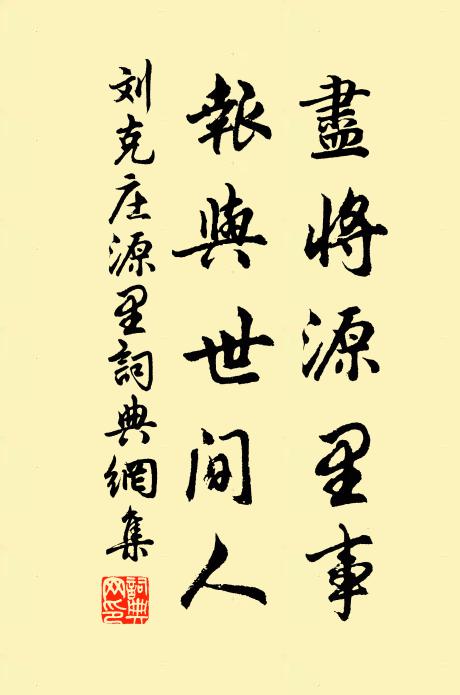 盡將源里事
報與世間人
刘克庄源里詞典網集
詞典網印